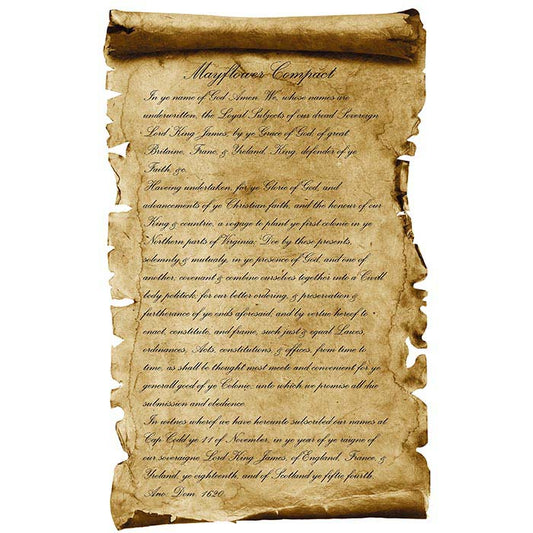 Mayflower Compact
In ye name of God Amen. We, whose names are
underwritten, the Loyal Subjects of our dread Sovereign
Lord King James, by ye Grace of God, of great
Britaine, Franc, & Yreland, King, defender of ye
Faith, &c.
Haveing undertaken, for ye Glorie of God, and
advancements of ye Christian faith, and the honour of our
King & countrie, a voyage to plant ye first colonie in ye
Northern parts of Virginia; Doe by these presents,
solemnly & mutualy, in ye presence of God, and one of
another, covenant & combine ourselves together into a Civill
body politick; for our better ordering, & preservation &
furtherance of ye ends aforesaid; and by vertue hereof to
enact, constitute, and frame, such just & equal Lawes,
ordinances, Acts, constitutions, & offices, from time to
time, as shall be thought most meete and convenient for ye
generall good of ye Colonie; unto which we promise all due
submission and obedience.
In witnes wherof we have hereunto subscribed our names at
Cap Codd ye 11 of November, in ye year of ye raigne of
our soveraigne Lord King James, of England, France, &
Yreland, ye eighteenth, and of Scotland ye fiftie fourth.
Ano: Dom. 1620.